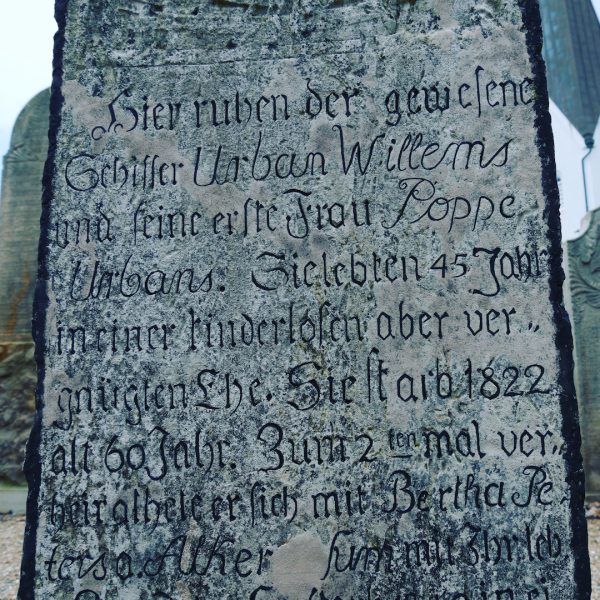 Hier ruhen der gewesene
Schiffer Urban Willems
und seine erste Frau Poppe
Urbans. Sie lebten 45 Jahr
in einer kinderlosen aber ver„
gnügten Ehe. Sie starb 1822
alt 60 Jahr. Zum 2ten mal ver„
heirathete er sich mit Bertha Pe
ters a. Alkersum mit Ihr leb